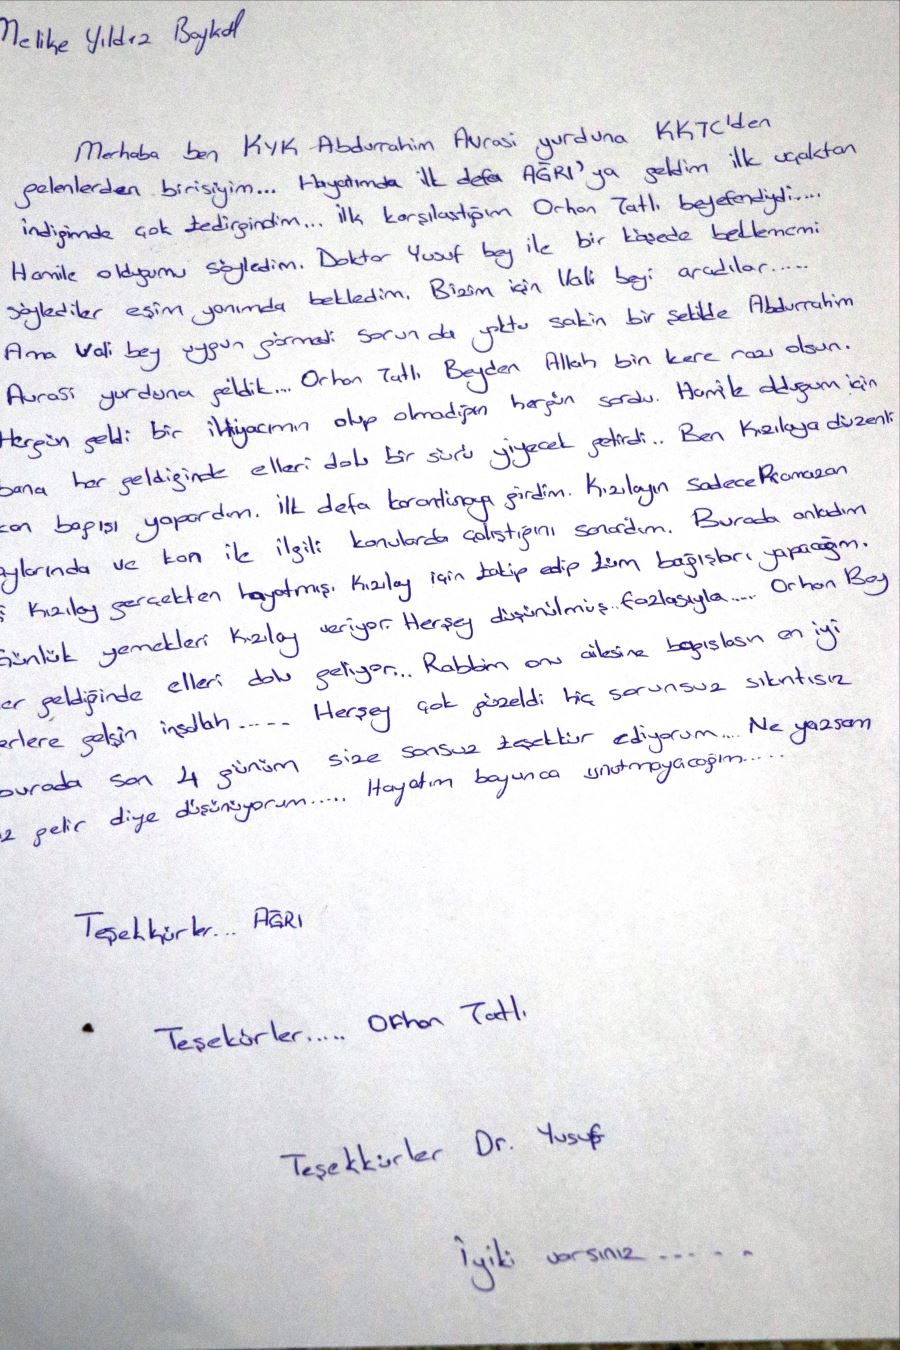 Melike Yıldız Baykal
Merhaba ben KYK Abdurrahim Avrasi yurduna KKTC'den
gelenlerden birisiyim... Hayatımda ilk defa AĞRI'ya geldim ilk uçaktan
indiğimde çok tedirgindim... ilk karşılaştığım Orhan Tatlı beyefendiydi.....
Hamile olduğumu söyledim. Doktor Yusuf bey ile bir köşede beklememi
söylediler eşim yanımda bekledim. Bizim için Vali beyi aradılar.....
Ama Vali bey uygun görmedi sorun da yoktu sakin bir şekilde Abdurrahim
Avrasi yurduna geldik... Orhan Tatlı Beyden Allah bin kere razı olsun.
Hergün geldi bir ihtiyacımın olup olmadığın hergün sordu. Hamile olduğum için
bana her geldiğinde elleri dolu bir sürü yiyecek getirdi.. Ben Kızılaya düzenli
kan bağışı yapardım. ilk defa karantinaya girdim. Kızılayın sadece Ramazan
aylarında ve kan ile ilgili konularda çalıştığını sanardım. Burada anladım
Kızılay gerçekten hayatmış. Kızılay için takip edip tüm bağışları yapacağım.
Günlük yemekleri Kızılay veriyor. Herşey düşünülmüş.. fazlasıyla.... Orhan Bey
er geldiğinde elleri dolu geliyor... Rabbim onu ailesine bağışlasın en iyi
erlere gelsin inşallah..... Herşey çok güzeldi hiç sorunsuz sıkıntısız
burada son 4 günüm size sonsuz teşekkür ediyorum.... Ne yazsam
az gelir diye düşünüyorum..... Hayatım boyunca unutmayacağım.....
Teşekkürler... AĞRI
Teşekürler..... Orhan Tatlı
Teşekkürler Dr. Yusuf
İyiki varsınız.....